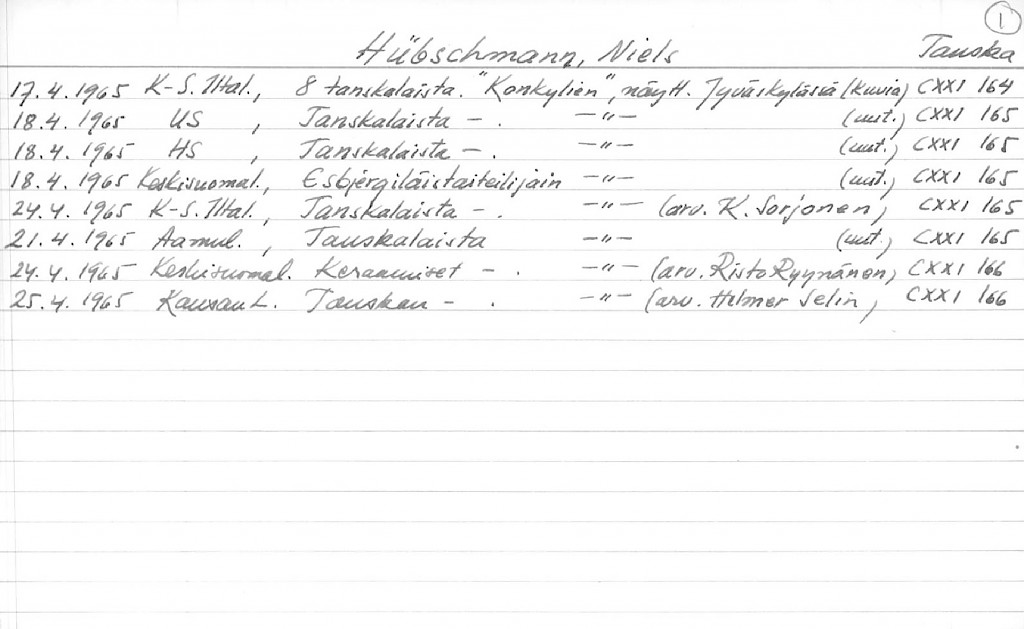 1
Hübschmann, Niels Tanska
17.4.1965 K-S. Iltal., 8 tanskalaista. "Konkylien", näytt. Jyväskylässä (kuvia) CXXI 164
18.4.1965 US , Tanskalaista - . -"- (uut.) CXXI 165
18.4.1965 HS , Tanskalaista - . -"- (uut.) CXXI 165
18.4.1965 Keskisuomal., Esbjergiläistaiteilijain -"- (uut.) CXXI 165
24.4.1965 K-S. Iltal., Tanskalaista - . -"- (arv. K. Sorjonen) CXXI 165
21.4.1965 Aamul. , Tanskalaista -"- (uut.) CXXI 165
24.4.1965 Keskisuomal. Keraamiset - . -"- (arv. Risto Ryynänen) CXXI 166
25.4.1965 Kansan L. Tanskan - . -"- (arv. Hilmer Selin) CXXI 166